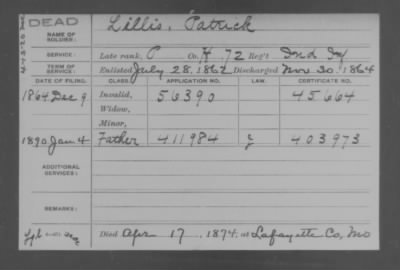 DEAD
NAME OF SOLDIER: Lillis, Patrick
SERVICE: Late rank, P Co. H 72 Reg't Ind Inf
TERM OF SERVICE: Enlisted July 28, 1862 Discharged Nov 30, 1864
DATE OF FILING. CLASS. APPLICATION NO. LAW. CERTIFICATE NO.
1864 Dec 9 Invalid, 56390 45,664
Widow,
Minor,
1890 Jan 4 Father 411984 403973
ADDITIONAL SERVICES:
REMARKS:
Died Apr 17, 1874, at Lafayette Co, Mo